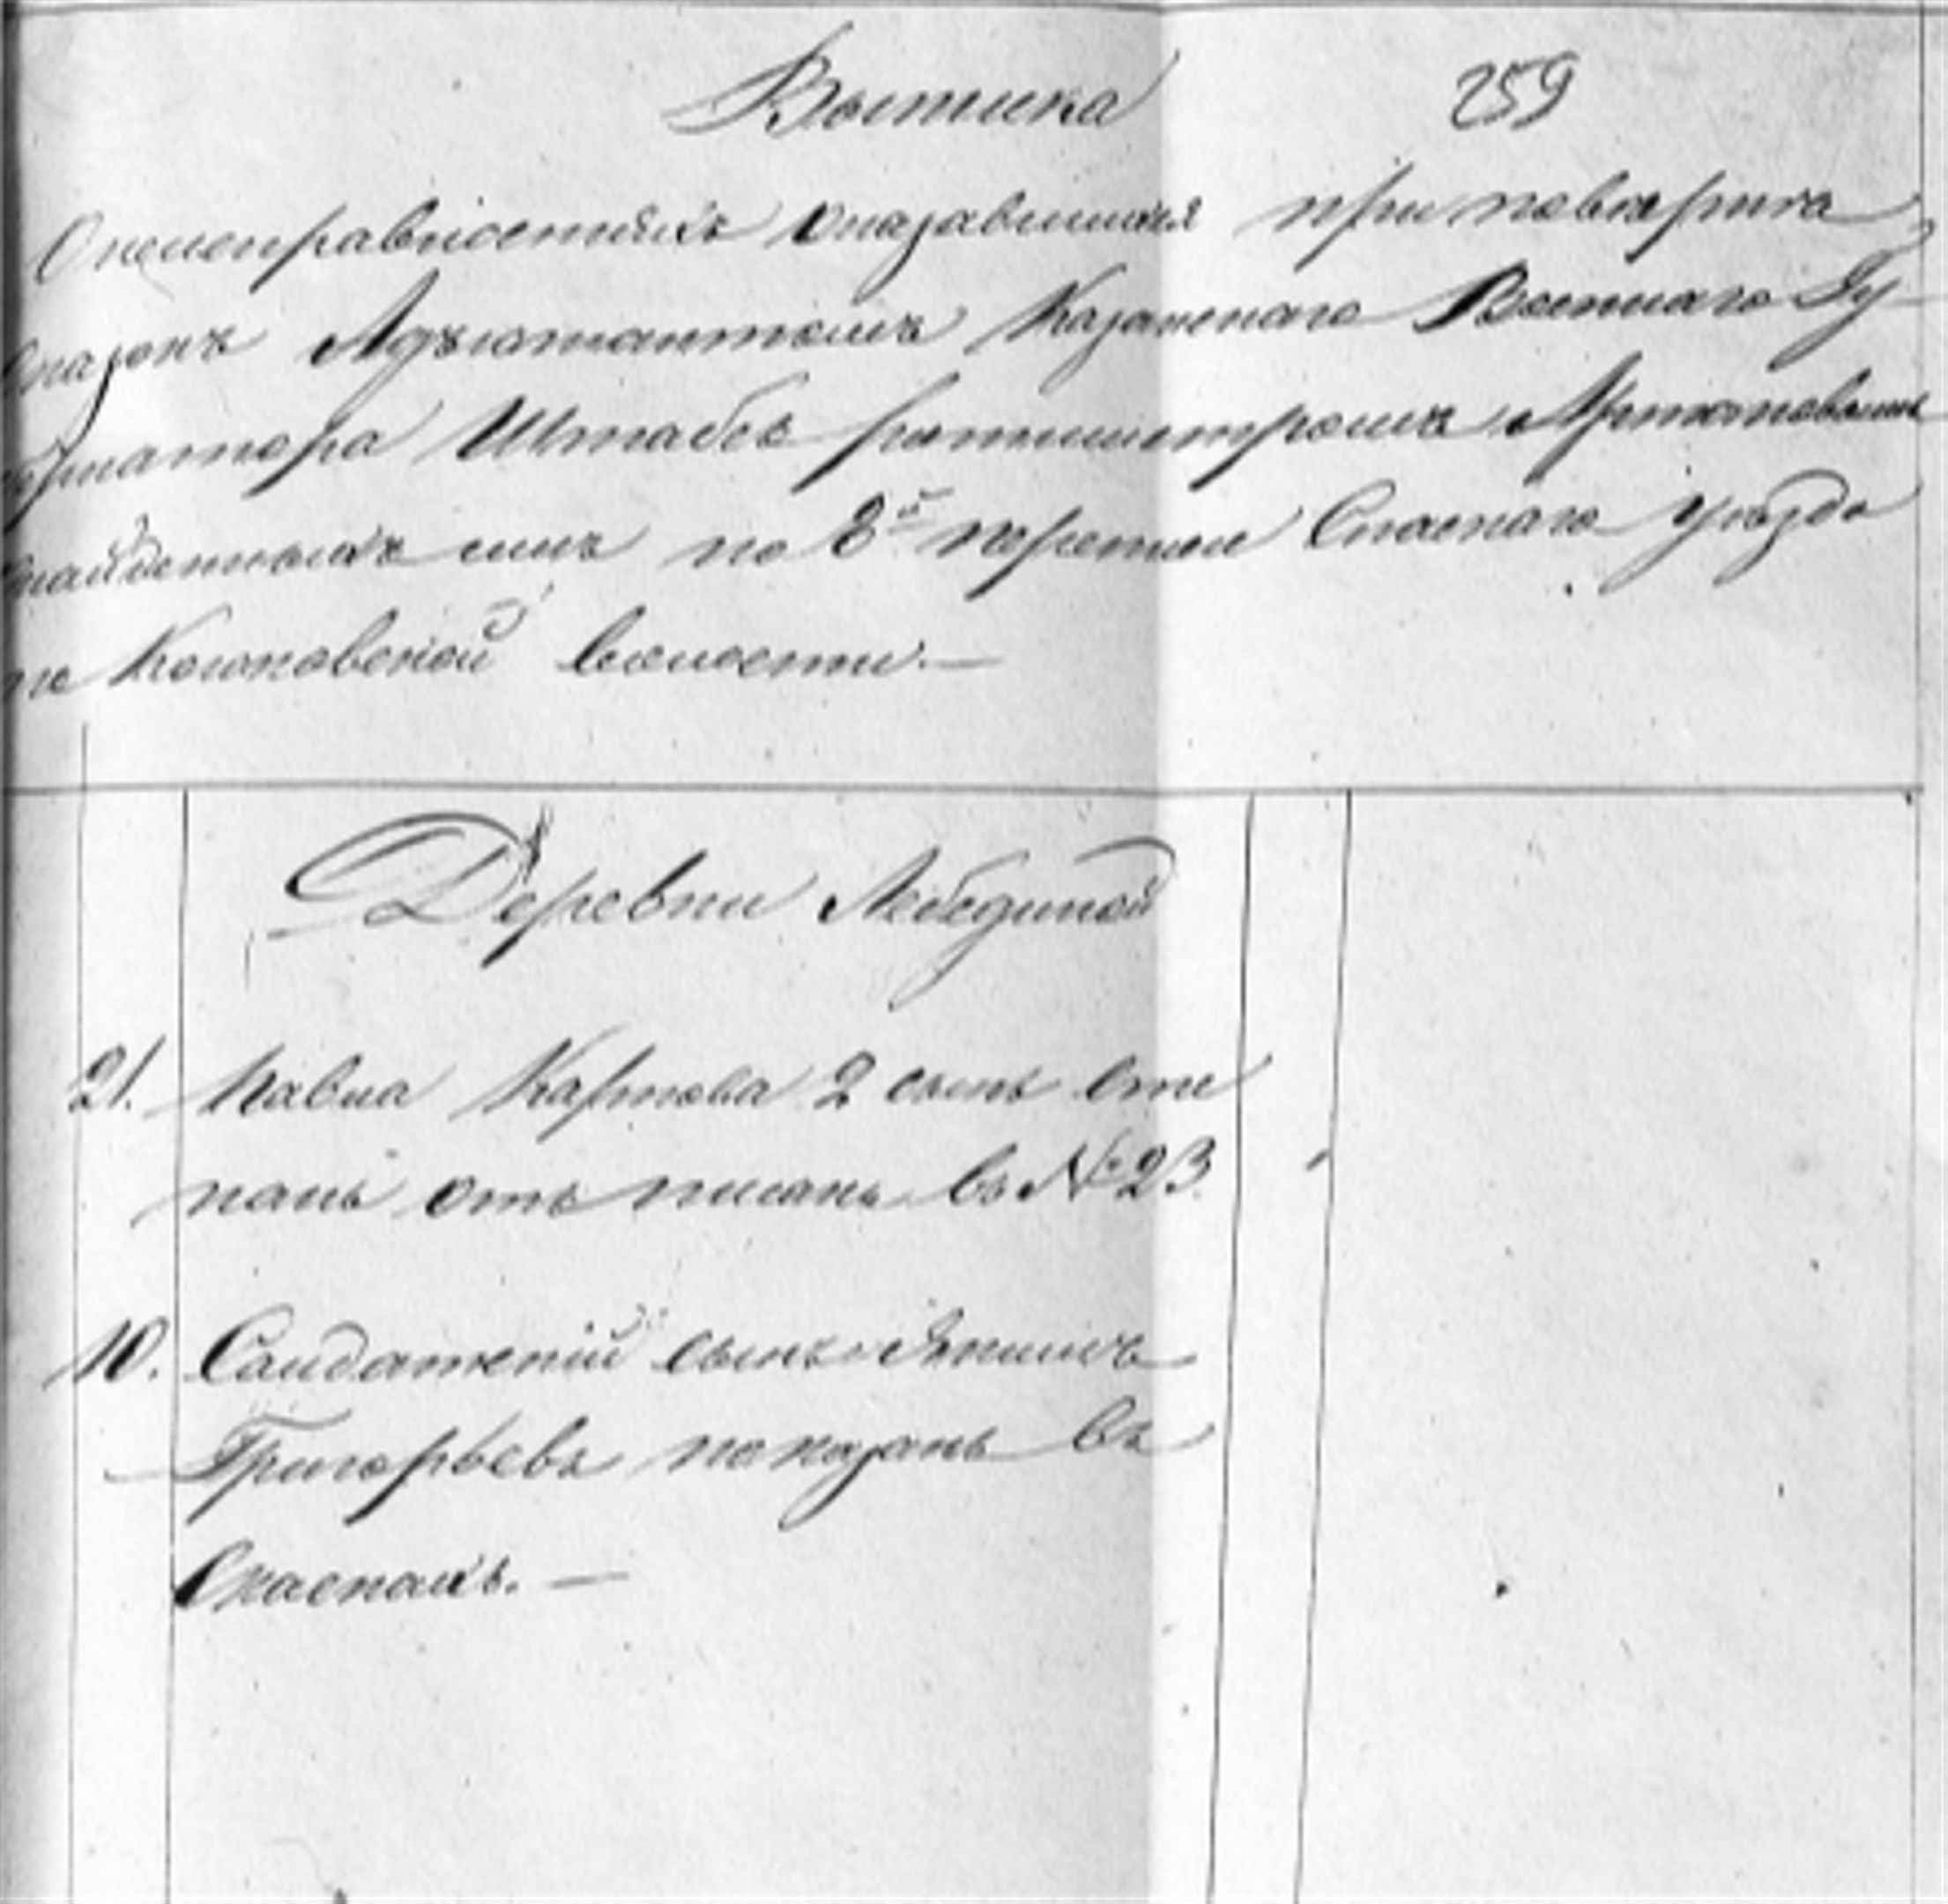 Выписка 259
О неисправностяхъ оказавшихся при поверкѣ
сказокъ Адъютантомъ Казанскаго Военнаго Гу-
бернатора Штабсъ ротмистромъ
найденныхъ имъ по 8й переписи Спаскаго уѣзда
по волости.—
Деревни Лебединой
21. Павла Карпова 2 сынъ Сте
панъ отъ писанъ въ № 23
10. Солдатскій сынъ Якимъ
Григорьевъ показанъ въ
Сказкахъ.—